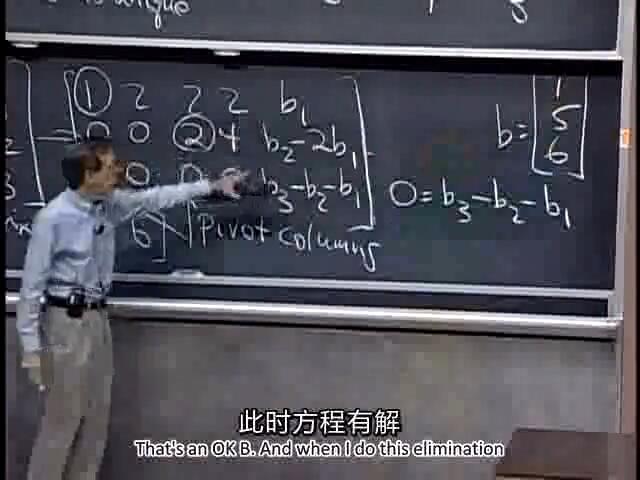 ① 2 2 2 b₁
0 0 ② 4 b₂-2b₁
0 b₃-b₂-b₁
6] Pivot columns
b=
5
6
0=b₃-b₂-b₁
此时方程有解
That's an OK B. And when I do this elimination